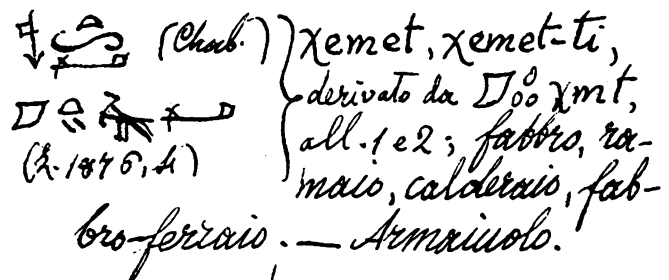 (Chab.) χemet, χemet-ti,
derivato da χmt,
all. 1 e 2; fabbro, ra-
(Z. 1876, 4) maio, calderaio, fab-
bro-ferraio. — Armaiuolo.